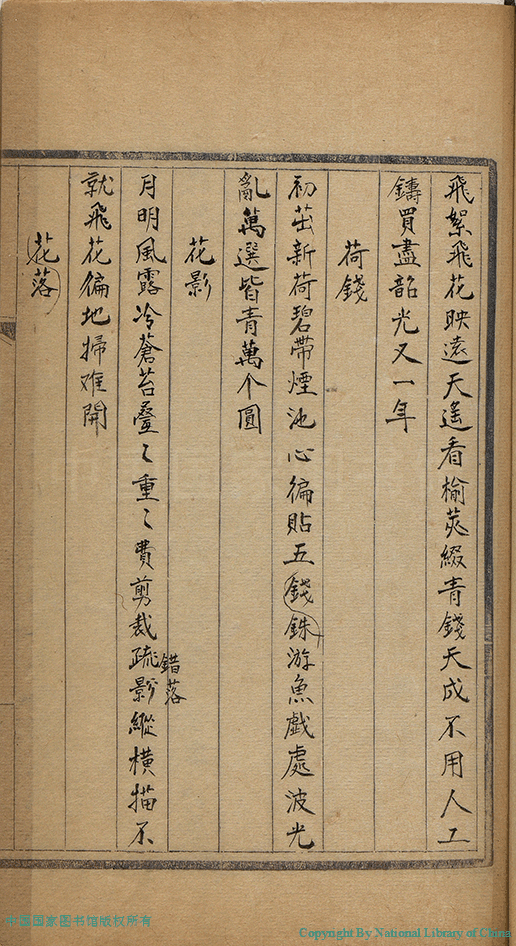 飛絮飛花映遠天遙看榆莢綴青錢天成不用人工
鑄買盡韶光又一年
荷錢
初茁新荷碧帶煙池心徧貼五錢銖游魚戲處波光
亂萬選皆青萬个圓
花影
月明風露冷蒼苔疊〻重〻費剪裁疏影縱橫描不
錯落
就飛花徧地掃难開
花落
中国国家图书馆版权所有
Copyright By National Library of China